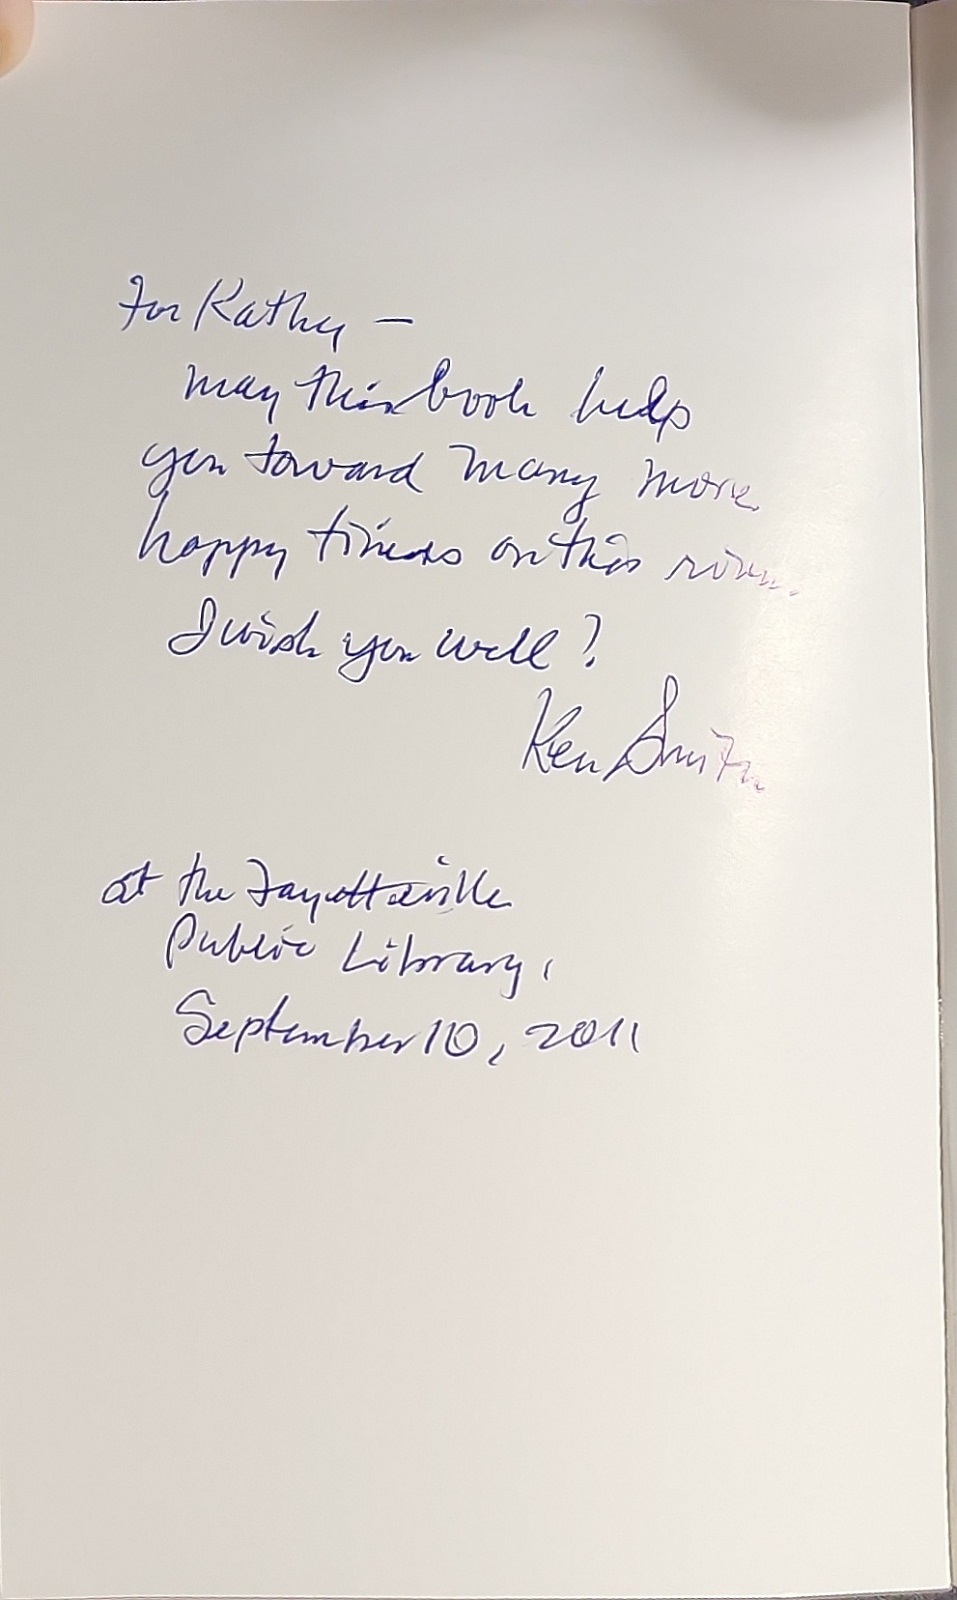 For Kathy —
may this book help
you toward many more
happy times on this river.
I wish you well!
Ken Smith
at the Fayetteville
Public Library,
September 10, 2011